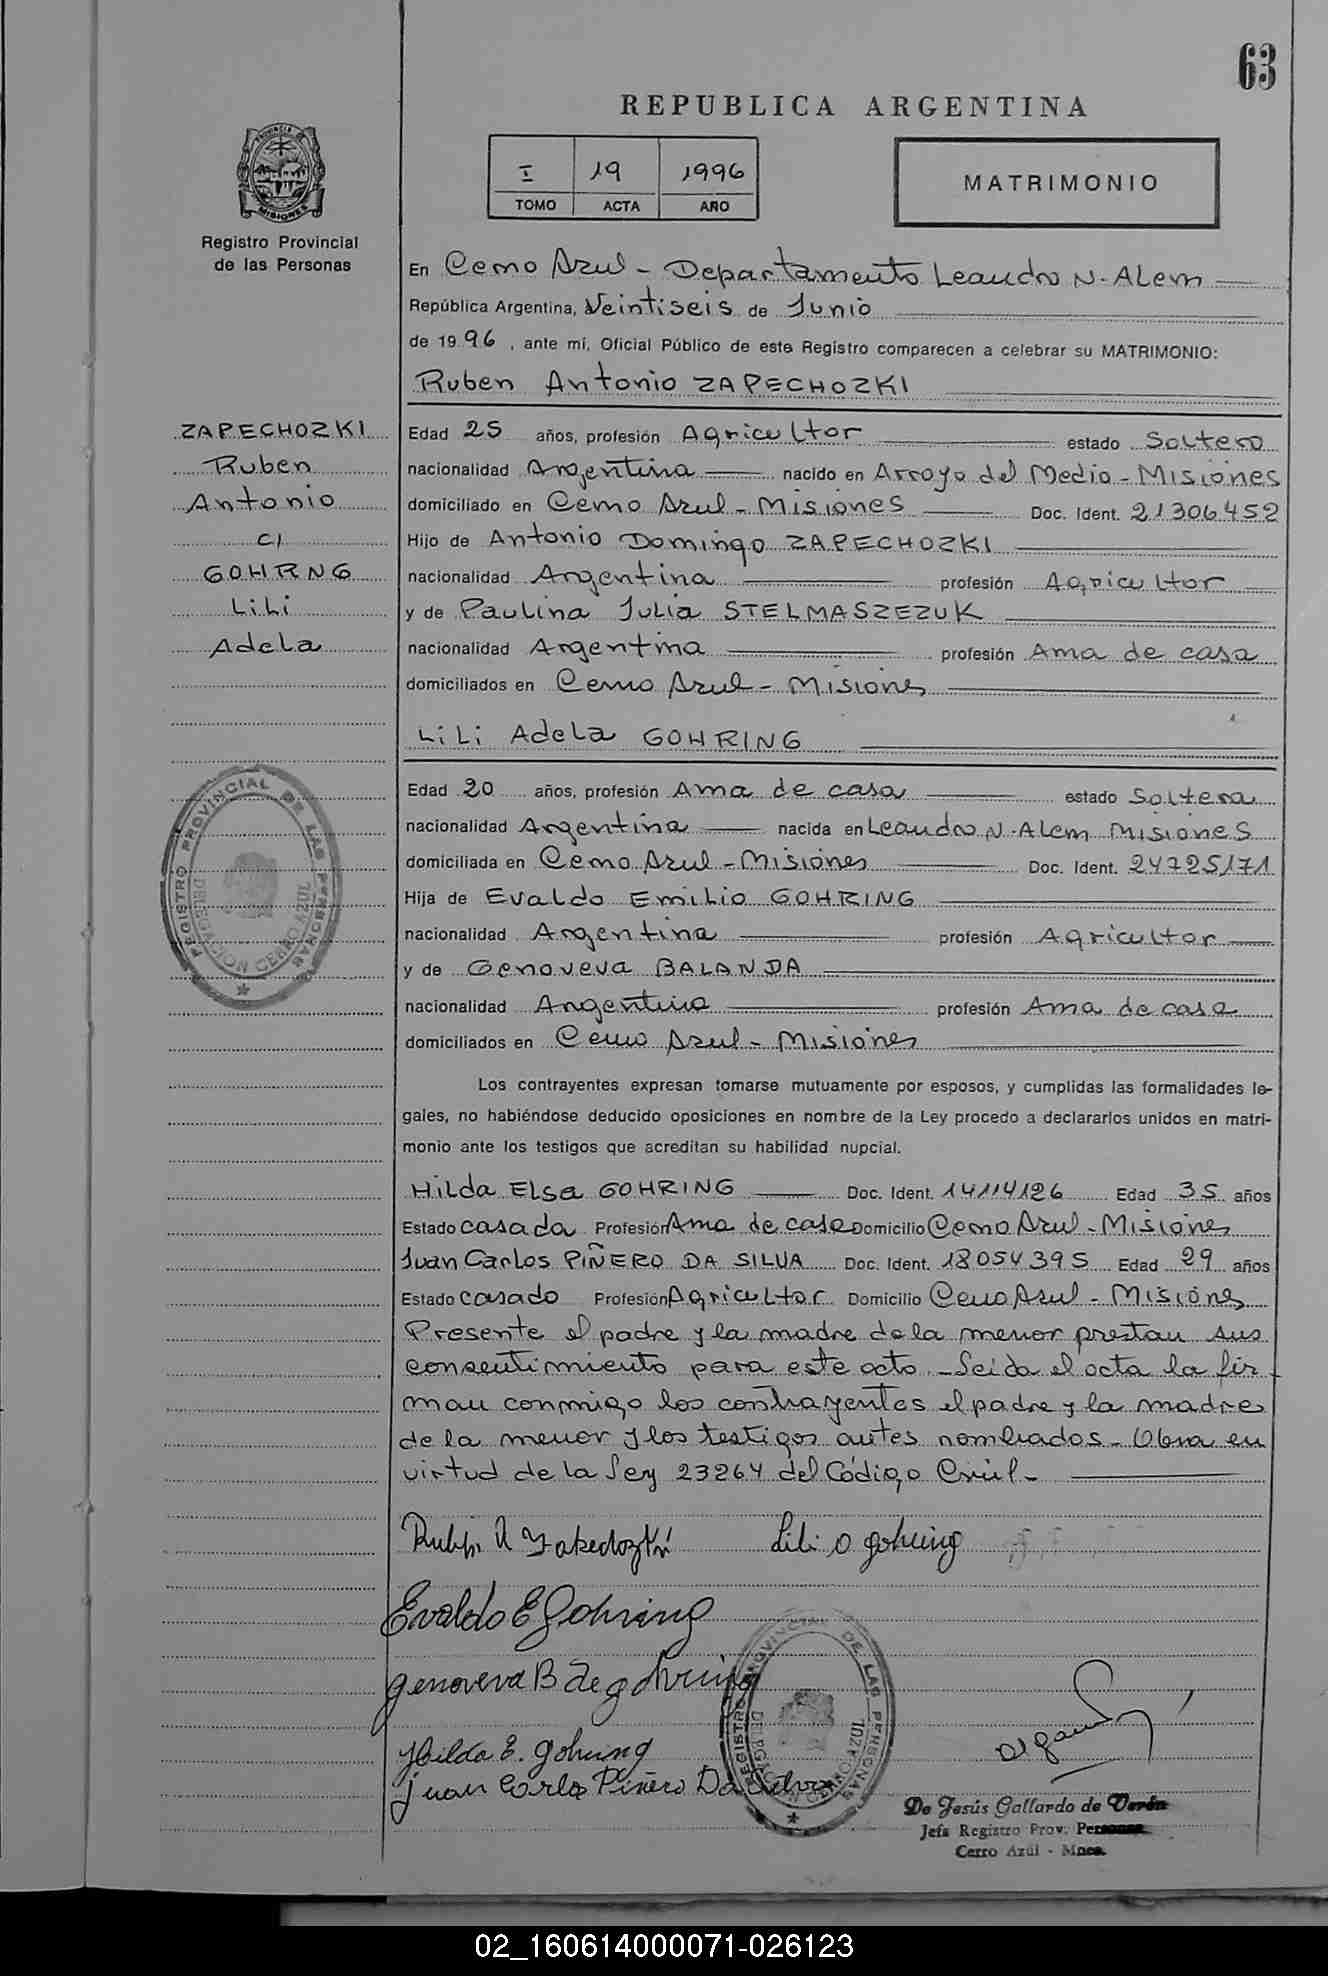 63
REPUBLICA ARGENTINA
I 19 1996
TOMO ACTA AÑO
MATRIMONIO
PROVINCIA DE MISIONES
Registro Provincial
de las Personas
En Cerro Azul - Departamento Leandro N. Alem
República Argentina, Veintiseis de Junio
de 1996, ante mí, Oficial Público de este Registro comparecen a celebrar su MATRIMONIO:
Ruben Antonio ZAPECHOZKI
ZAPECHOZKI
Ruben
Antonio
c/
GOHRNG
LiLi
Adela
Edad 25 años, profesión Agricultor estado Soltero
nacionalidad Argentina nacido en Arroyo del Medio - Misiones
domiciliado en Cerro Azul - Misiones Doc. Ident. 21306452
Hijo de Antonio Domingo ZAPECHOZKI
nacionalidad Argentina profesión Agricultor
y de Paulina Julia STELMASZEZUK
nacionalidad Argentina profesión Ama de casa
domiciliados en Cerro Azul - Misiones
LiLi Adela GOHRING
Edad 20 años, profesión Ama de casa estado Soltera
nacionalidad Argentina nacida en Leandro N. Alem Misiones
domiciliada en Cerro Azul - Misiones Doc. Ident. 24725171
Hija de Evaldo Emilio GOHRING
nacionalidad Argentina profesión Agricultor
y de Genoveva BALANDA
nacionalidad Argentina profesión Ama de casa
domiciliados en Cerro Azul - Misiones
REGISTRO PROVINCIAL DE LAS PERSONAS
DELEGACION CERRO AZUL
Los contrayentes expresan tomarse mutuamente por esposos, y cumplidas las formalidades le-
gales, no habiéndose deducido oposiciones en nombre de la Ley procedo a declararlos unidos en matri-
monio ante los testigos que acreditan su habilidad nupcial.
Hilda Elsa GOHRING Doc. Ident. 14114126 Edad 35 años
Estado casada Profesión Ama de casa Domicilio Cerro Azul - Misiones
Juan Carlos PIÑERO DA SILVA Doc. Ident. 18054395 Edad 29 años
Estado casado Profesión Agricultor Domicilio Cerro Azul - Misiones
Presente el padre y la madre de la menor prestan sus
consentimiento para este acto - Leida el acta la fir-
man conmigo los contrayentes el padre y la madre
de la menor y los testigos antes nombrados - Obra en
virtud de la Ley 23264 del Código Civil -
Lili A gohring
Evaldo E Gohring
genoveva B de gohring
Hilda E. gohring
Juan Carlos Piñero Da Silva
REGISTRO PROVINCIAL DE LAS PERSONAS
DELEGACION CERRO AZUL
De Jesús Gallardo de Verón
Jefa Registro Prov. Personas
Cerro Azúl - Mnes.
02_160614000071-026123